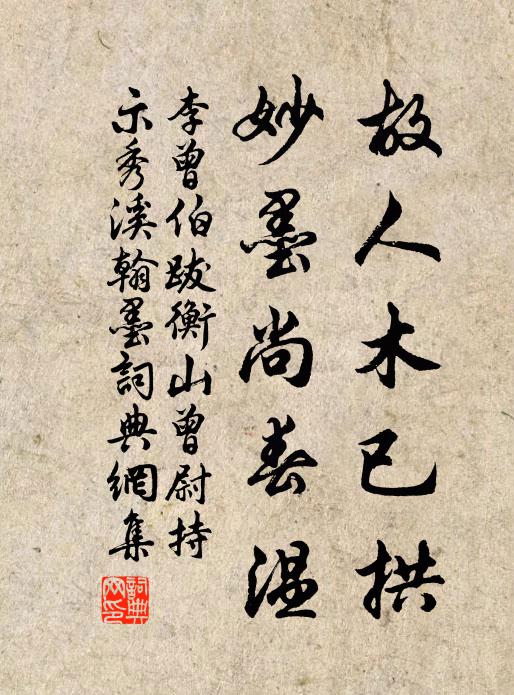 故人木已拱
妙墨尚春温
李曾伯跋衡山曾尉持
示秀溪翰墨詞典網集
詞典
网印